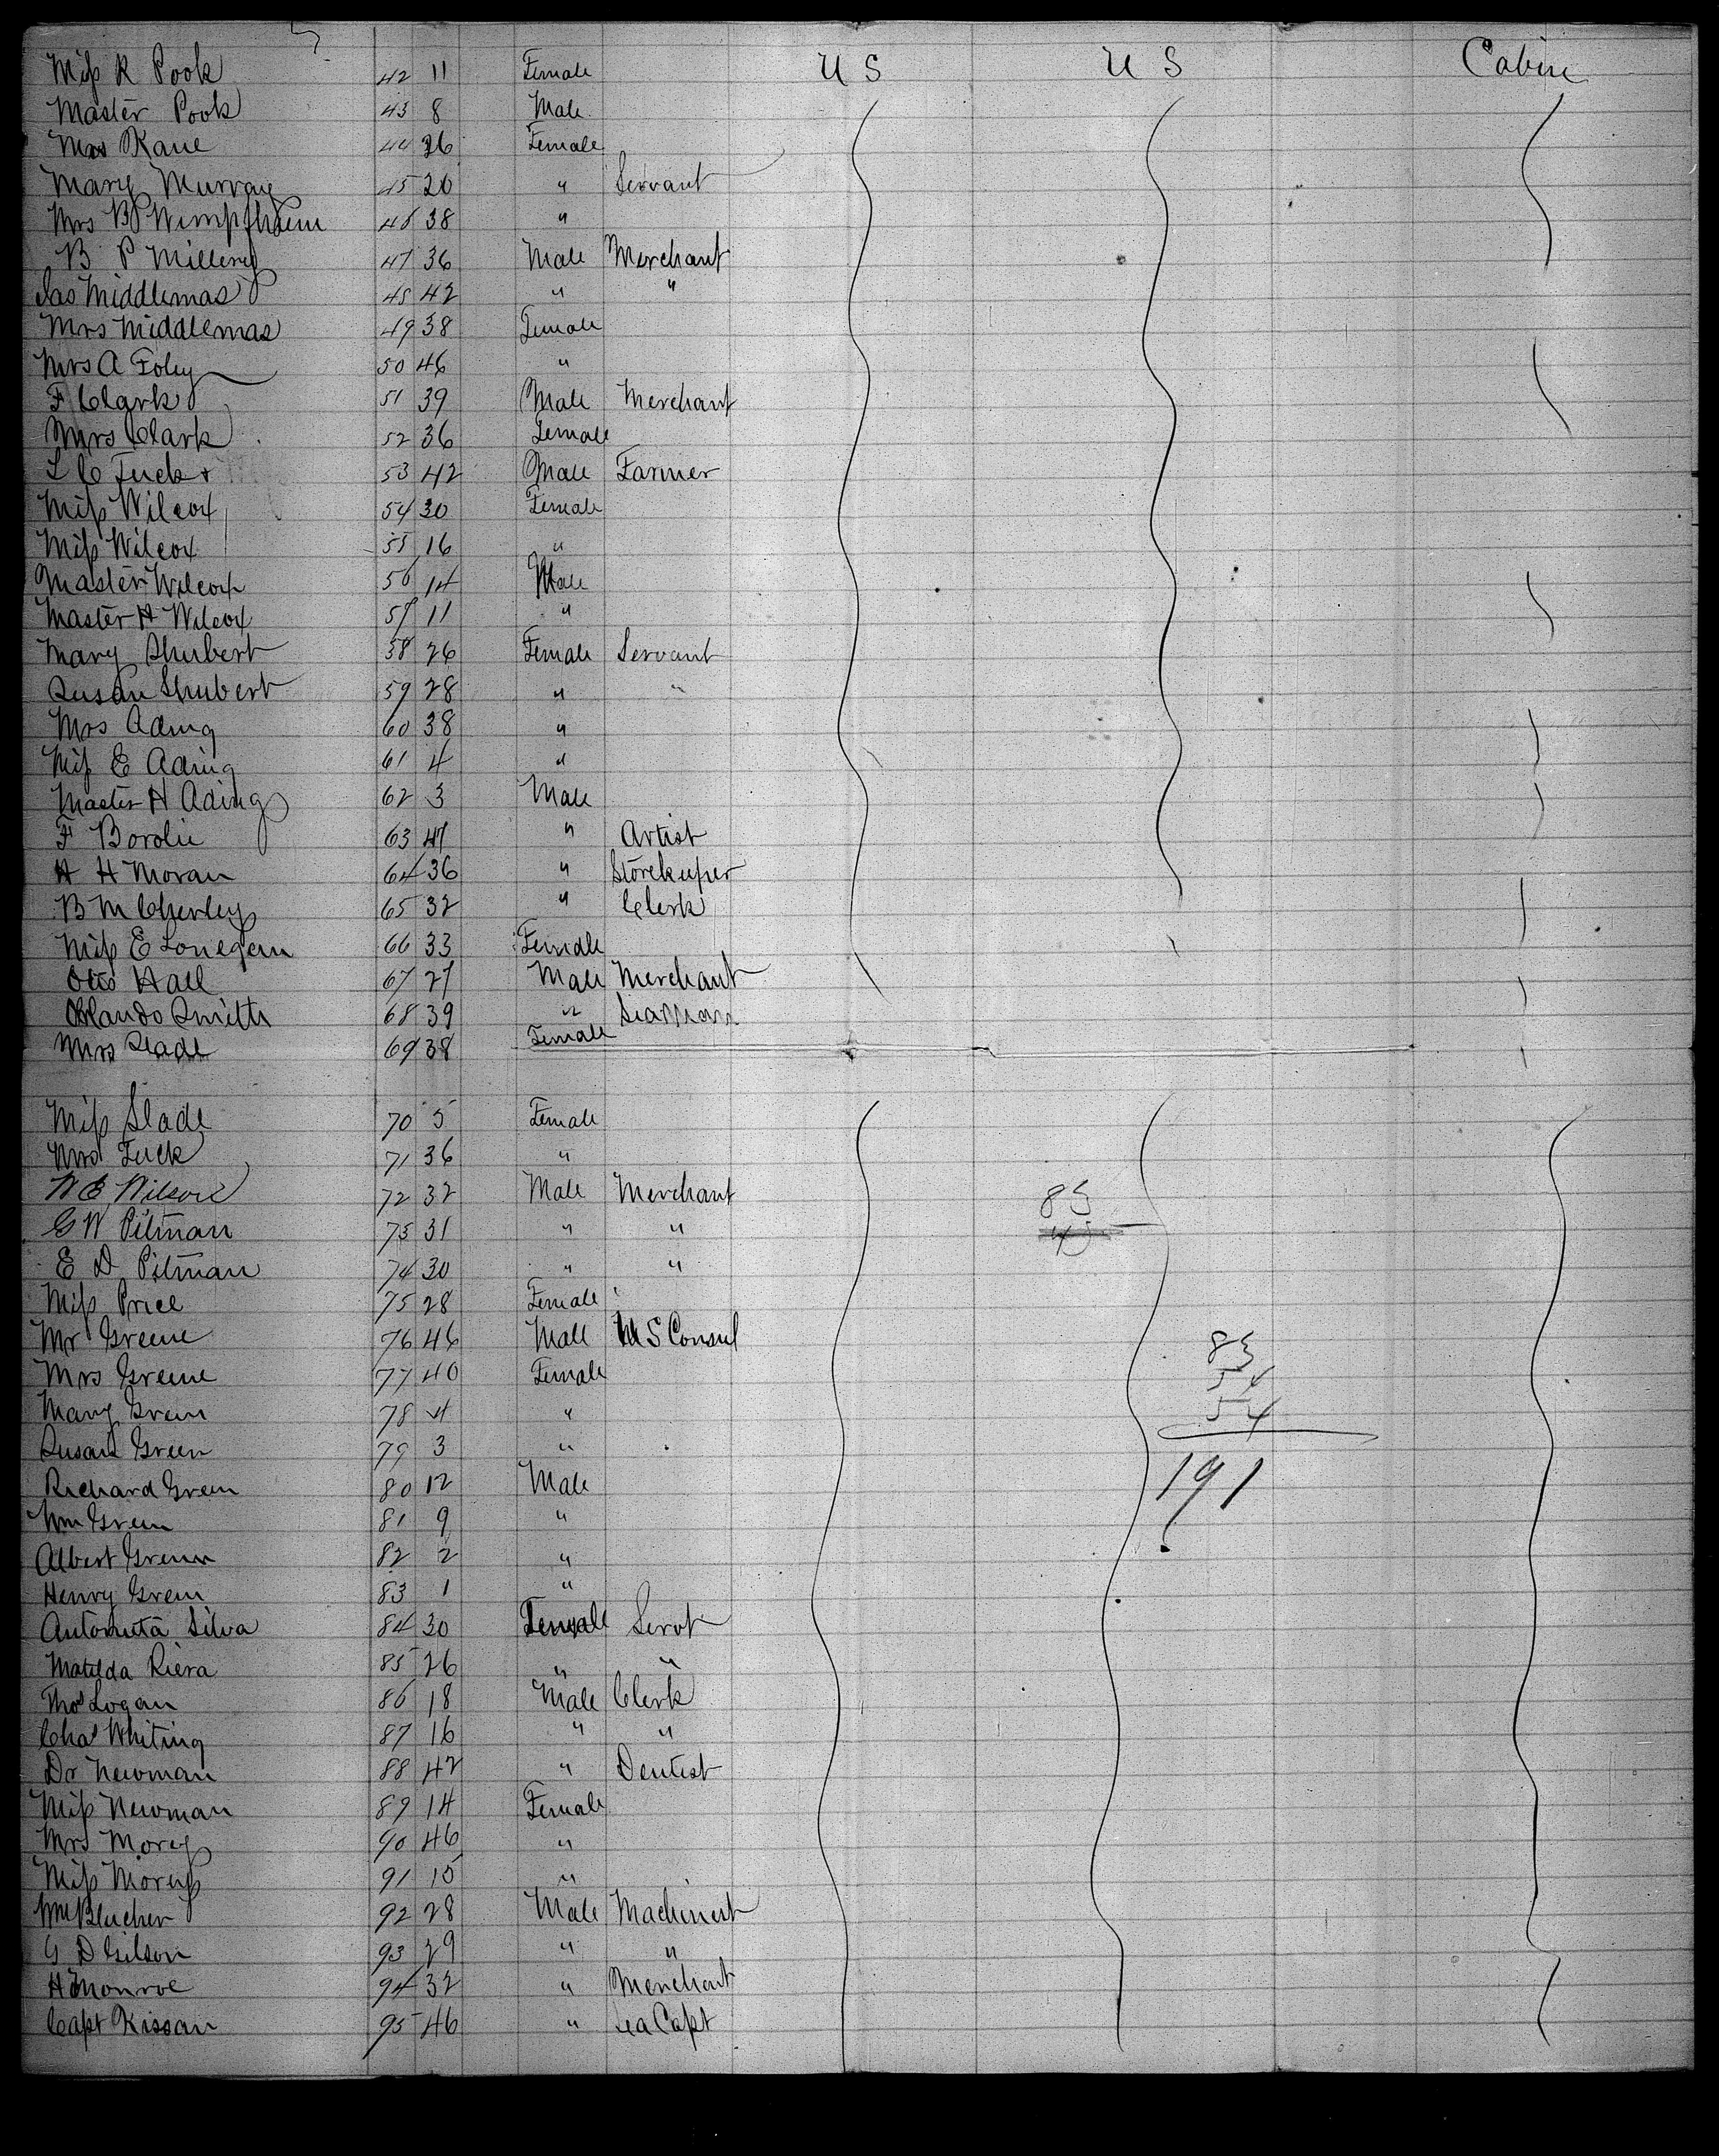 Miss K Pook 42 11 Female U S U S Cabin
Master Pook 43 8 Male
Mrs Kane 44 26 Female
Mary Murray 45 20 " Servant
Mrs B 46 38 "
B P Millery 47 36 Male Merchant
Jas Middlemas 48 42 " "
Mrs Middlemas 49 38 Female
Mrs A Foley 50 46 "
F Clark 51 39 Male Merchant
Mrs Clark 52 36 Female
L C Tuck 53 42 Male Farmer
Miss Wilcox 54 30 Female
Miss Wilcox 55 16 "
Master Wilcox 56 14 Male
Master H Wilcox 57 11 "
Mary Shubert 58 26 Female Servant
Susan Shubert 59 28 " "
Mrs Ading 60 38 "
Miss E Ading 61 4 "
Master H Ading 62 3 Male
F Borolie 63 "  Artist
H H Moran 64 36 " Storekeeper
B M Cherley 65 32 " Clerk
Miss E Lonegan 66 33 Female
Otis Hall 67 27 Male Merchant
Orlando Smith 68 39 " Seaman
Mrs Slade 69 38 Female
Miss Slade 70 5 Female
Mrs Tuck 71 36 "
Wilson 72 32 Male Merchant
85
G W Pitman 73 31 " "
45
E D Pitman 74 30 " "
Miss Price 75 28 Female
Mr Greene 76 46 Male U S Consul
85
Mrs Greene 77 40 Female
Mary Green 78 4 "
54
Susan Green 79 3 "
Richard Green 80 12 Male
191
Wm Green 81 9 "
Albert Green 82 2 "
Henry Green 83 1 "
Antonieta Silva 84 30 Female Servt
Matilda Riera 85 26 " "
Thos Logan 86 18 Male Clerk
Chas Whiting 87 16 " "
Dr Newman 88 42 " Dentist
Miss Newman 89 14 Female
Mrs Morey 90 46 "
Miss Morey 91 15 "
Wm Blucher 92 28 Male Machinist
G D Gilson 93 29 " "
H Monroe 94 32 " Merchant
Capt Kissan 95 46 " Sea Capt